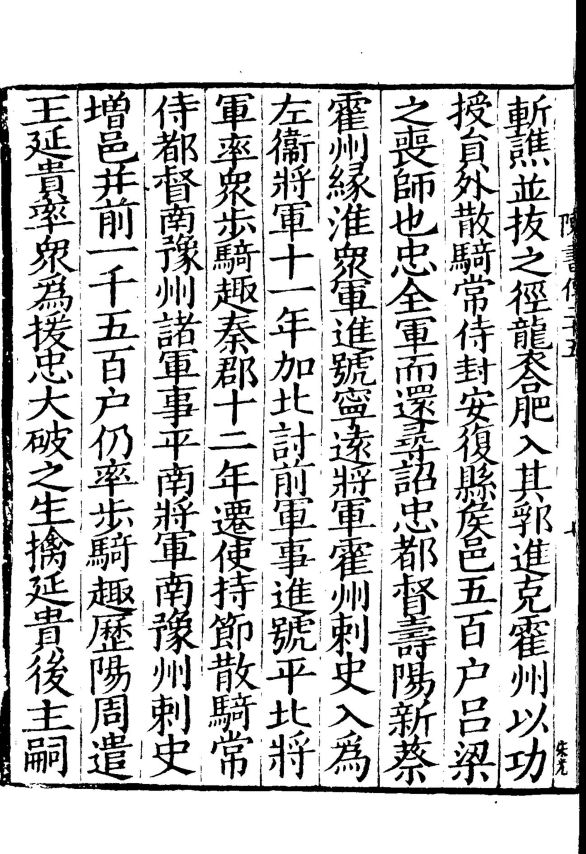 斬譙並拔之徑襲合肥入其郛進克霍州以功
授貟外散騎常侍封安復縣矦邑五百户吕梁
之喪師也忠全軍而還尋詔忠都督壽陽新蔡
霍州緣淮衆軍進號寧遠將軍霍州刺史入爲
左衞將軍十一年加北討前軍事進號平北將
軍率衆步騎趣秦郡十二年遷使持節散騎常
侍都督南豫州諸軍事平南將軍南豫州刺史
増邑并前一千五百户仍率步騎趣歷陽周遣
王延貴率衆爲援忠大破之生擒延貴後主嗣